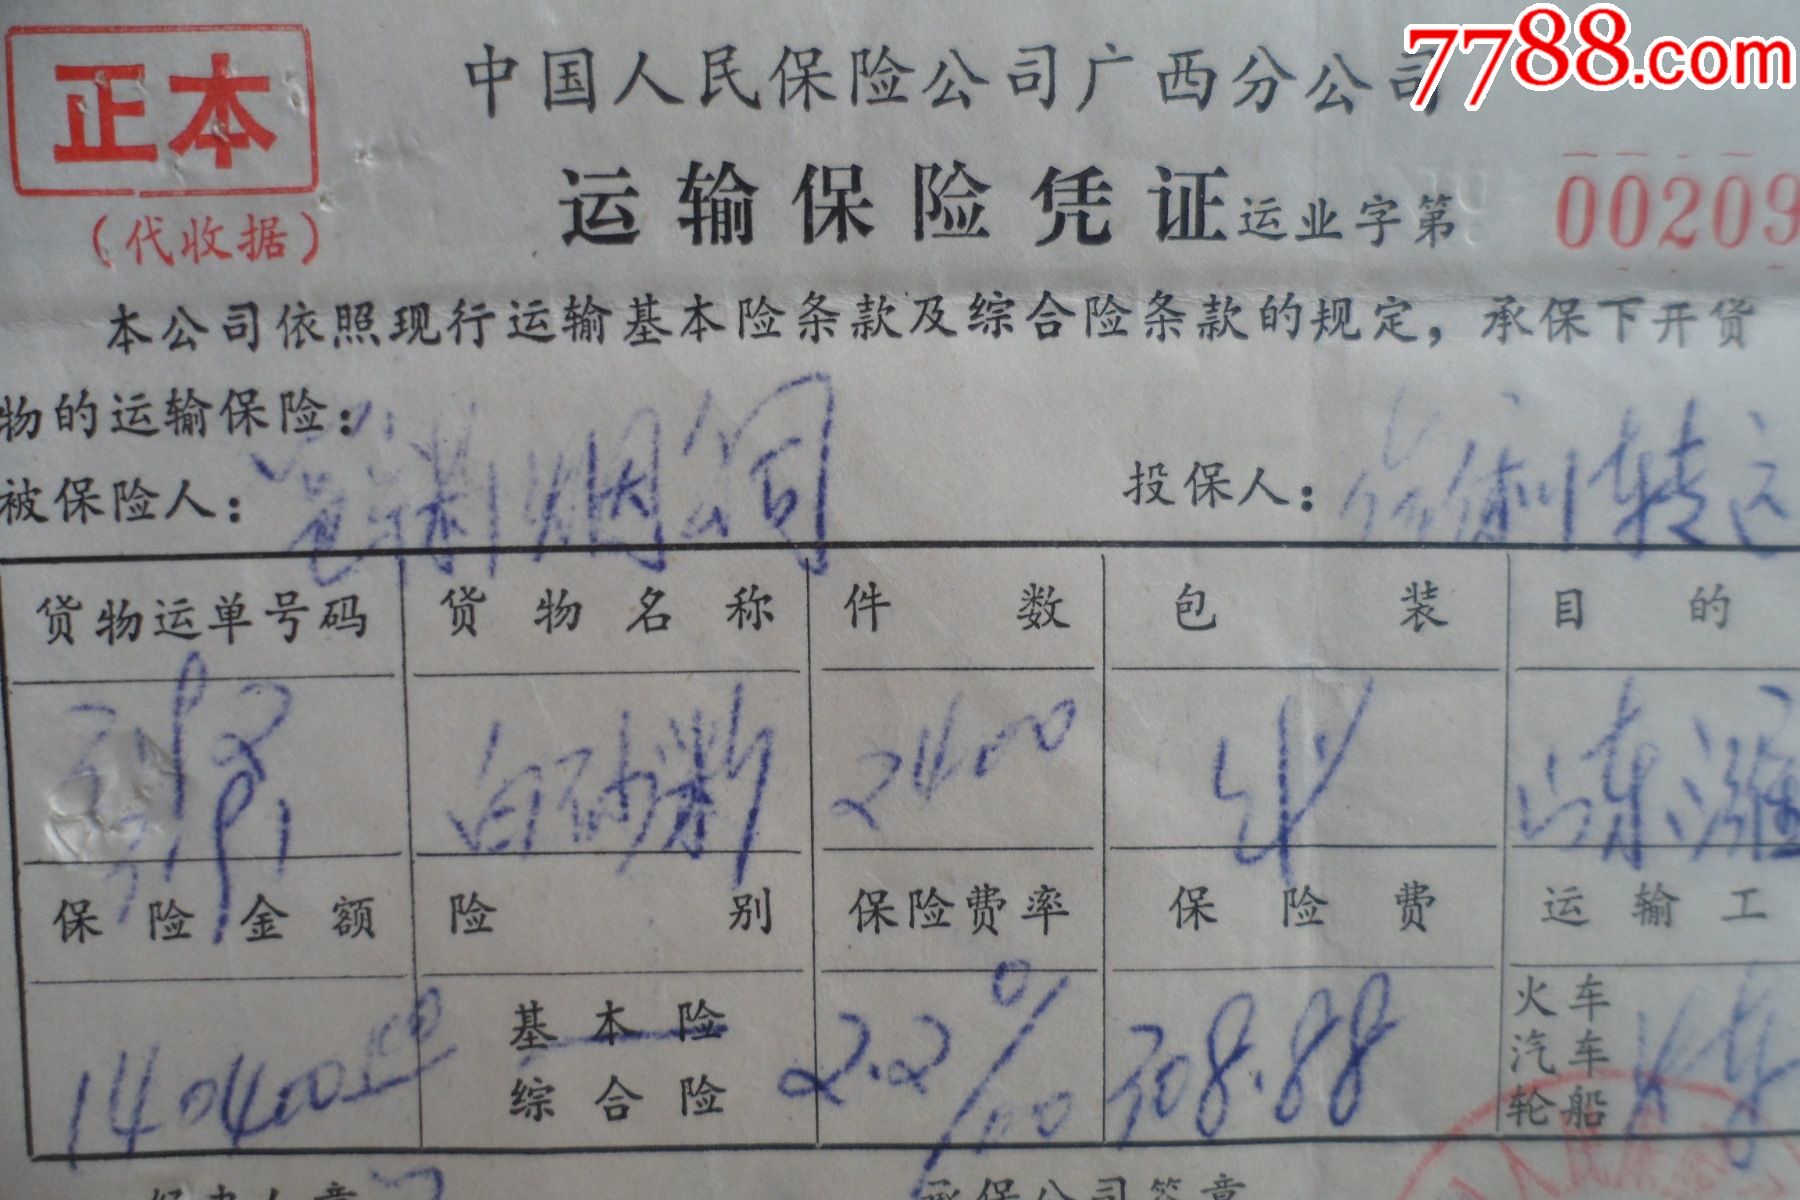 7788.com
正本
(代收据)
中国人民保险公司广西分公司
运输保险凭证 运业字第 00209
本公司依照现行运输基本险条款及综合险条款的规定，承保下开货
物的运输保险：
被保险人： 烟公司 投保人： 转运
货物运单号码 货物名称 件数 包装 目的
白砂 2400 山东潍
保险金额 险别 保险费率 保险费 运输工
140400.00 基本险 综合险 2.2‰ 308.88 火车 汽车 轮船 火车
承保公司签章